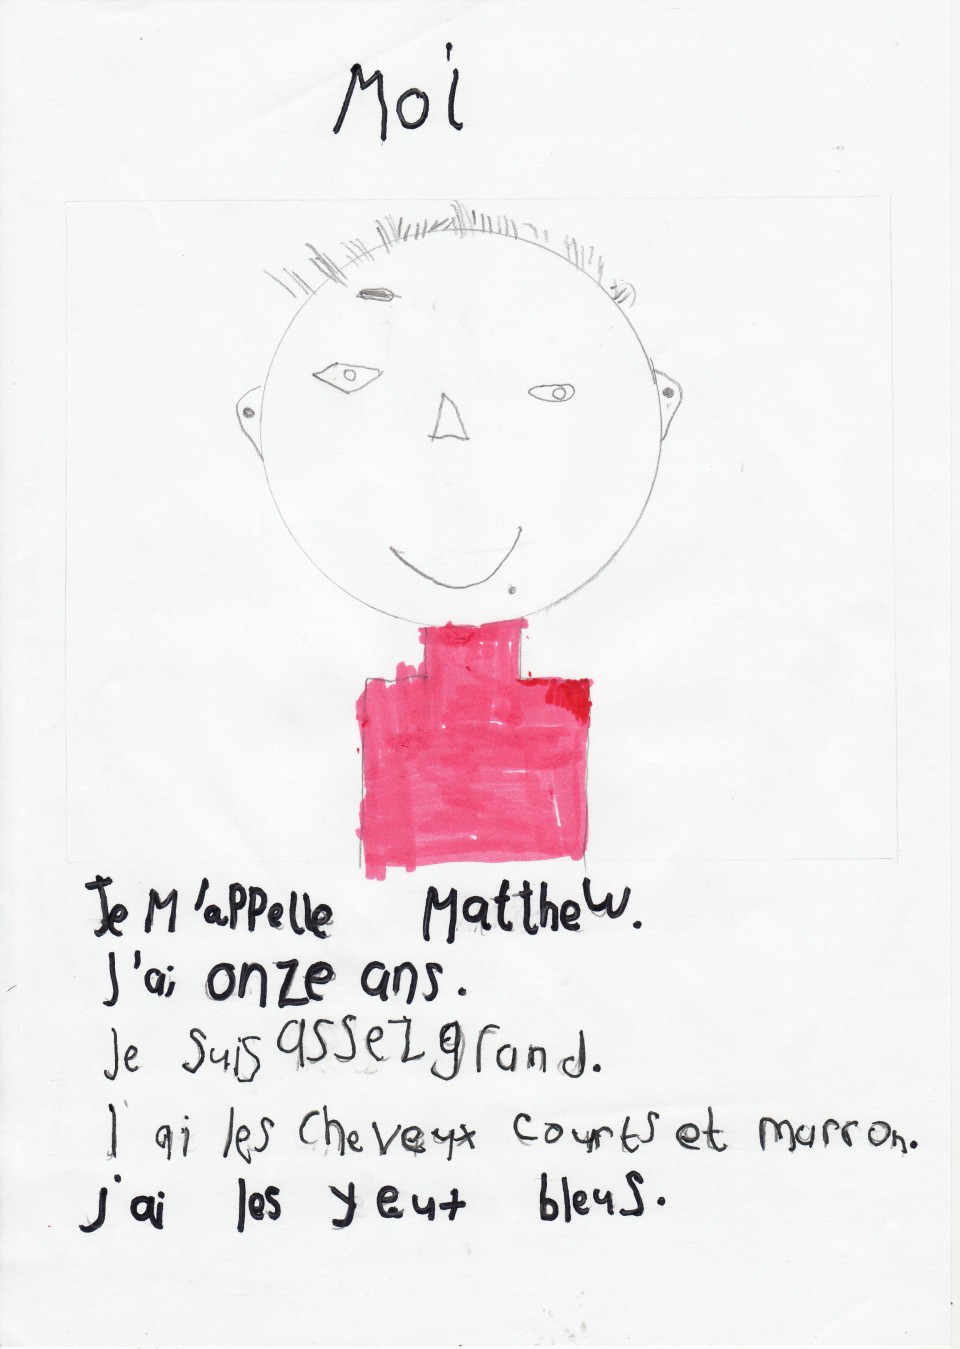 Moi
Je M'appelle Matthew.
J'ai onze ans.
Je suis assez grand.
J'ai les cheveux courts et marron.
J'ai les yeux bleus.